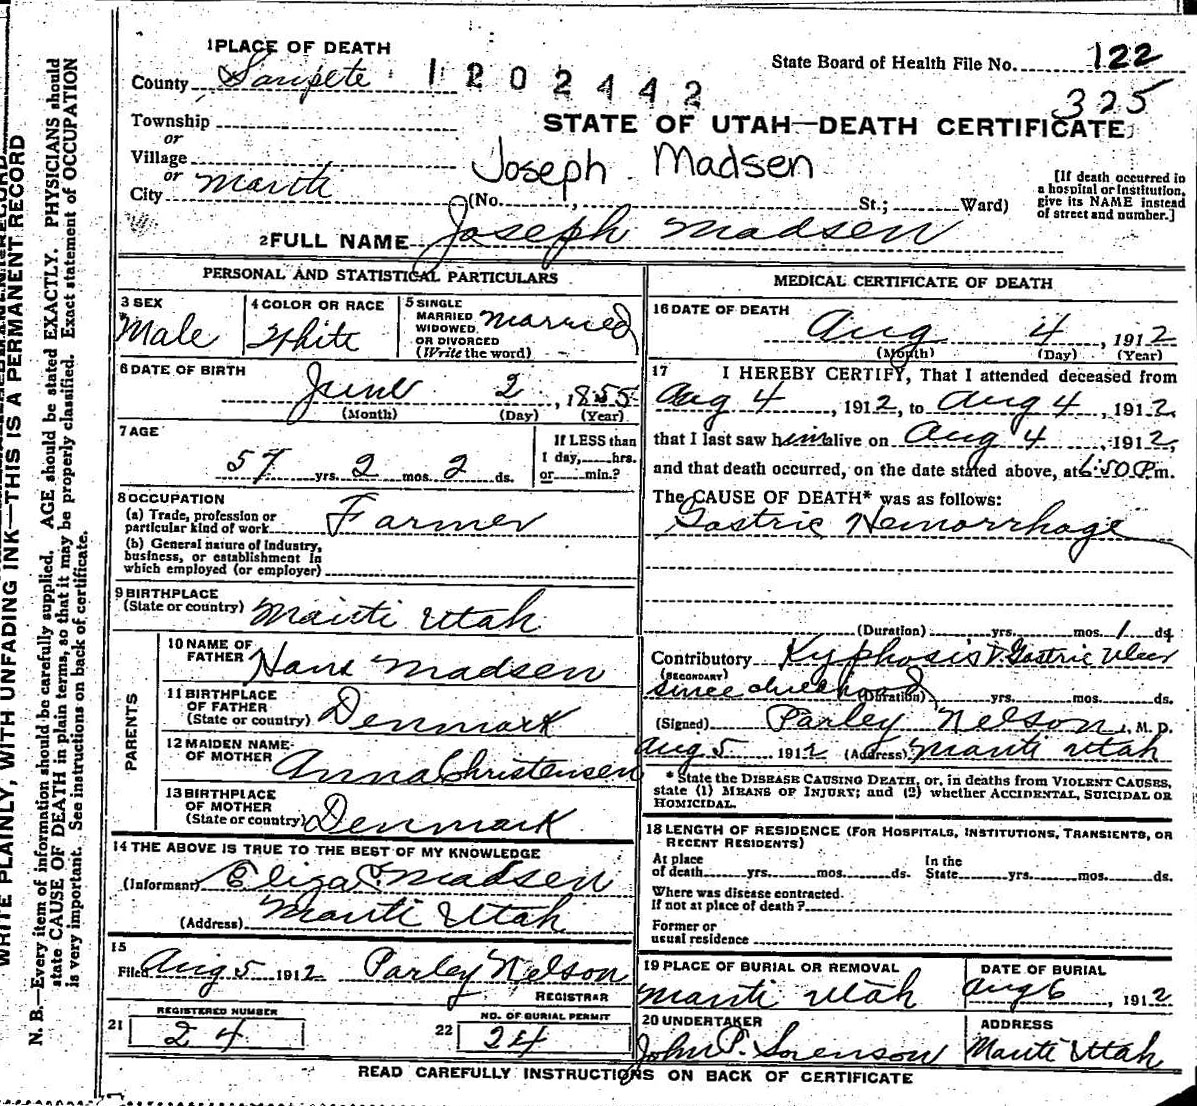 WRITE PLAINLY, WITH UNFADING INK—THIS IS A PERMANENT RECORD
N. B.—Every item of information should be carefully supplied. AGE should be stated EXACTLY. PHYSICIANS should
state CAUSE OF DEATH in plain terms, so that it may be properly classified. Exact statement of OCCUPATION
is very important. See instructions on back of certificate.
1 PLACE OF DEATH
County Sanpete
1202442
State Board of Health File No. 122
325
Township
STATE OF UTAH—DEATH CERTIFICATE
or
Village
Joseph Madsen
or
City Manti
(No. , St.; Ward)
[If death occurred in
a hospital or institution,
give its NAME instead
of street and number.]
2 FULL NAME Joseph Madsen
PERSONAL AND STATISTICAL PARTICULARS
3 SEX
Male
4 COLOR OR RACE
White
5 SINGLE
MARRIED
WIDOWED
OR DIVORCED
(Write the word)
Married
6 DATE OF BIRTH
June 2, 1855
(Month) (Day) (Year)
7 AGE
57 yrs. 2 mos. 2 ds.
If LESS than
1 day, hrs.
or min.?
8 OCCUPATION
(a) Trade, profession or
particular kind of work Farmer
(b) General nature of industry,
business, or establishment in
which employed (or employer)
9 BIRTHPLACE
(State or country) Manti Utah
PARENTS
10 NAME OF
FATHER Hans Madsen
11 BIRTHPLACE
OF FATHER
(State or country) Denmark
12 MAIDEN NAME
OF MOTHER Anna Christensen
13 BIRTHPLACE
OF MOTHER
(State or country) Denmark
14 THE ABOVE IS TRUE TO THE BEST OF MY KNOWLEDGE
(Informant) Eliza Madsen
(Address) Manti Utah
15
Filed Aug 5 1912 Parley Nelson
REGISTRAR
21 REGISTERED NUMBER
24
22 NO. OF BURIAL PERMIT
24
MEDICAL CERTIFICATE OF DEATH
16 DATE OF DEATH
Aug 4, 1912
(Month) (Day) (Year)
17 I HEREBY CERTIFY, That I attended deceased from
Aug 4, 1912, to Aug 4, 1912,
that I last saw him alive on Aug 4, 1912,
and that death occurred, on the date stated above, at 6:50 P.m.
The CAUSE OF DEATH* was as follows:
Gastric Hemorrhage
(Duration) yrs. mos. 1 ds.
Contributory Kyphosis & Gastric Ulcer
(SECONDARY)
since childhood (Duration) yrs. mos. ds.
(Signed) Parley Nelson, M. D.
Aug 5 1912 (Address) Manti Utah
* State the DISEASE CAUSING DEATH, or, in deaths from VIOLENT CAUSES,
state (1) MEANS OF INJURY; and (2) whether ACCIDENTAL, SUICIDAL OR
HOMICIDAL.
18 LENGTH OF RESIDENCE (FOR HOSPITALS, INSTITUTIONS, TRANSIENTS, OR
RECENT RESIDENTS)
At place
of death yrs. mos. ds.
In the
State yrs. mos. ds.
Where was disease contracted.
If not at place of death?
Former or
usual residence
19 PLACE OF BURIAL OR REMOVAL
Manti Utah
DATE OF BURIAL
Aug 6, 1912
20 UNDERTAKER
John P. Sorenson
ADDRESS
Manti Utah
READ CAREFULLY INSTRUCTIONS ON BACK OF CERTIFICATE